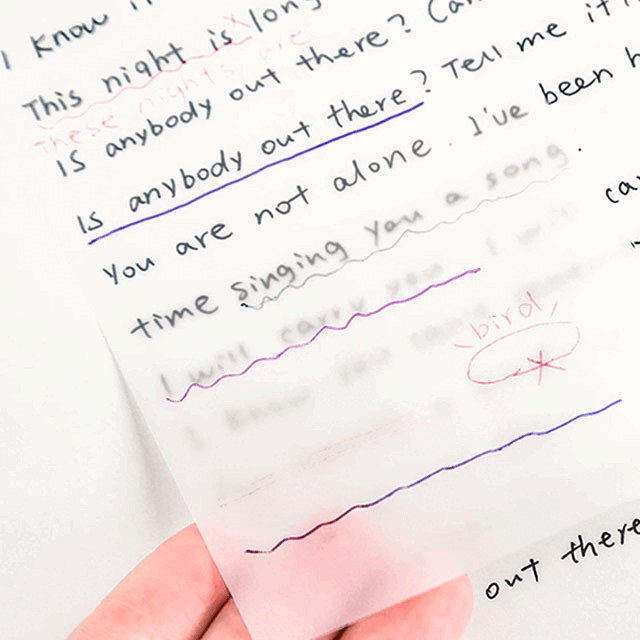 I know
This night is long
These nights are
Is anybody out there? Can
Is anybody out there? Tell me if
You are not alone. I've been h
time singing you a song.
I will carry you I will
I know you can't
bird
out there